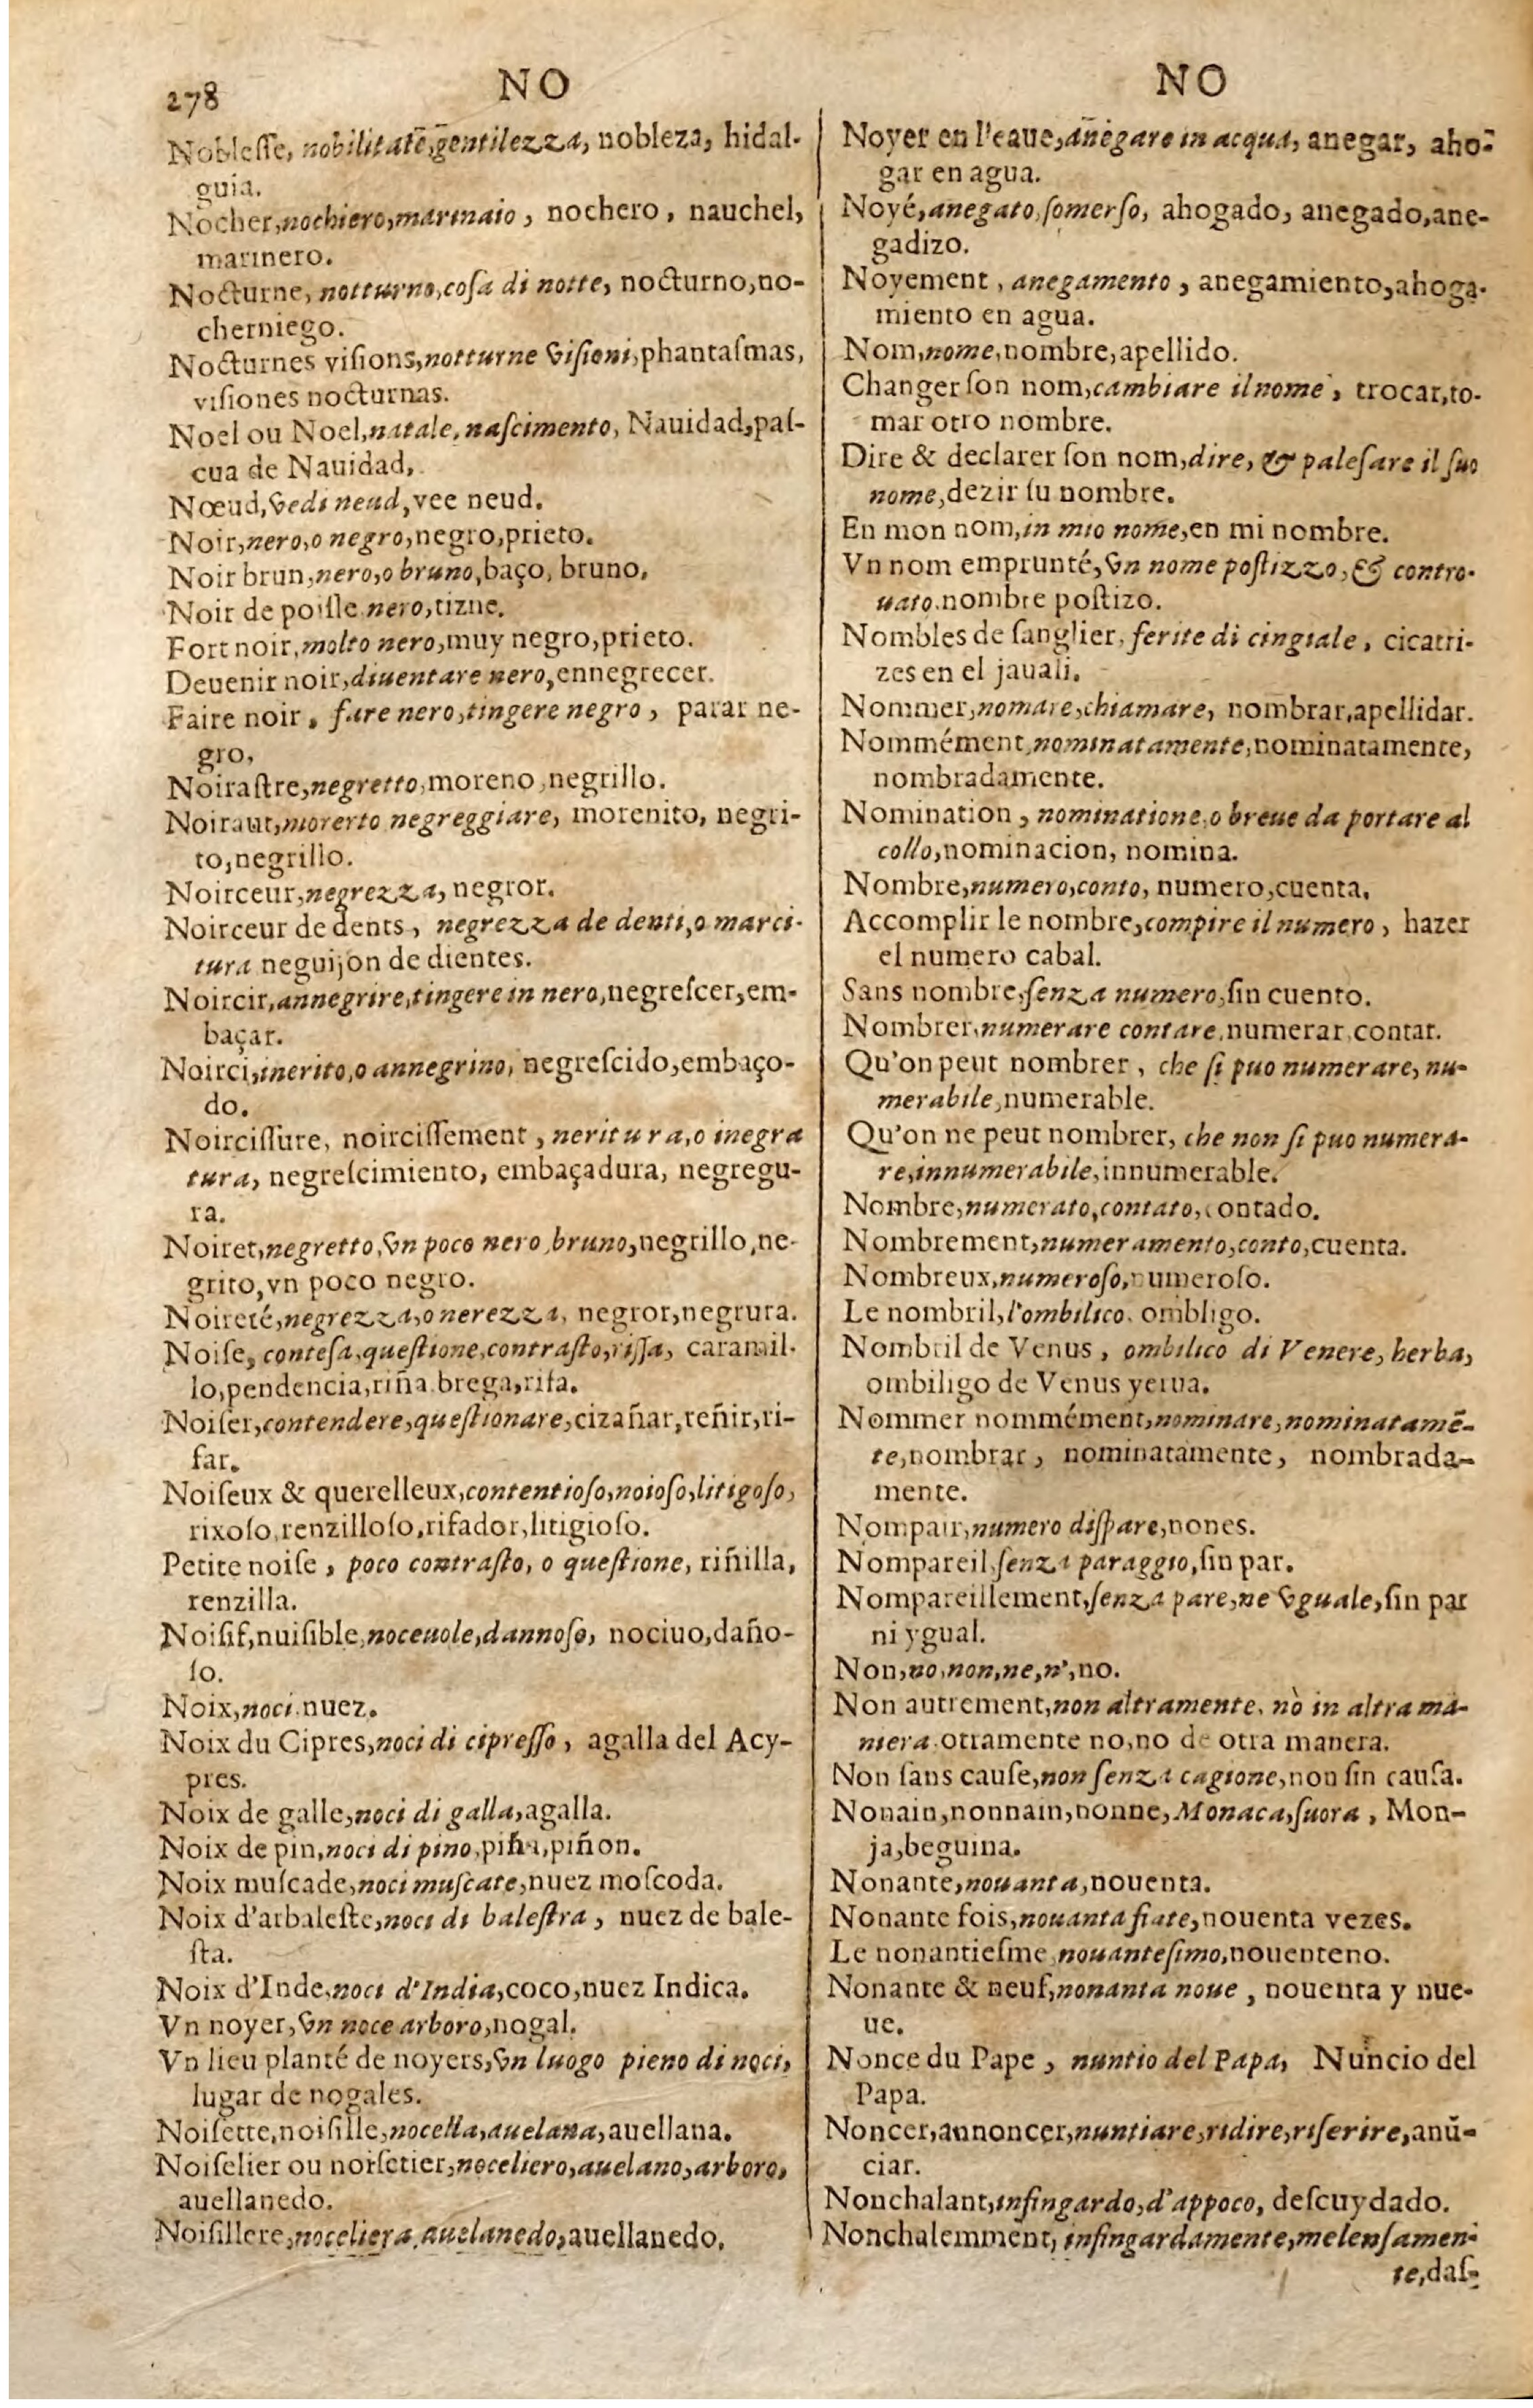 278
NO
Nobleſſe, nobilitate, gentilezza, nobleza, hidal-
guia.
Nocher,nochiero,marinaio, nochero, nauchel,
marinero.
Nocturne, notturno,coſa di notte, nocturno,no-
cherniego.
Nocturnes viſions,notturne viſioni,phantaſmas,
viſiones nocturnas.
Noel ou Noel,natale,naſcimento, Nauidad,paſ-
cua de Nauidad,
Nœud,vedi neud,vee neud.
Noir,nero,o negro,negro,prieto.
Noir brun,nero,o bruno,baço, bruno.
Noir de poiſle nero,tizne.
Fort noir,molto nero,muy negro,prieto.
Deuenir noir,diuentare nero,ennegrecer.
Faire noir, fare nero,tingere negro, parar ne-
gro,
Noiraſtre,negretto,moreno,negrillo.
Noiraut,morerto negreggiare, morenito, negri-
to,negrillo.
Noirceur,negrezza, negror.
Noirceur de dents, negrezza de denti,o marci-
tura neguijon de dientes.
Noircir,annegrire,tingere in nero,negreſcer,em-
baçar.
Noirci,inerito,o annegrino, negreſcido,embaço-
do.
Noirciſſure, noirciſſement, neritura,o inegra
tura, negreſcimiento, embaçadura, negregu-
ra.
Noiret,negretto,vn poco nero,bruno,negrillo,ne-
grito,vn poco negro.
Noireté,negrezza,o nerezza, negror,negrura.
Noiſe, conteſa,queſtione,contraſto,riſſa, caramil-
lo,pendencia,riña brega,rifa.
Noiſer,contendere,queſtionare,cizañar,reñir,ri-
far.
Noiſeux & querelleux,contentioſo,noioſo,litigoſo,
rixoſo,renzilloſo,rifador,litigioſo.
Petite noiſe, poco contraſto, o queſtione, riñilla,
renzilla.
Noiſif,nuiſible,noceuole,dannoſo, nociuo,daño-
ſo.
Noix,noci nuez.
Noix du Cipres,noci di cipreſſo, agalla del Acy-
pres.
Noix de galle,noci di galla,agalla.
Noix de pin,noci di pino,piña,piñon.
Noix muſcade,noci muſcate,nuez moſcoda.
Noix d'arbaleſte,noci di baleſtra, nuez de bale-
ſta.
Noix d'Inde,noci d'India,coco,nuez Indica.
Vn noyer,vn noce arboro,nogal.
Vn lieu planté de noyers,vn luogo pieno di noci,
lugar de nogales.
Noiſette,noiſille,nocella,auelana,auellana.
Noiſelier ou noiſetier,noceliero,auelano,arboro,
auellanedo.
Noiſillere,noceliera,auelanedo,auellanedo.
NO
Noyer en l'eaue,anegare in acqua, anegar, aho-
gar en agua.
Noyé,anegato,ſomerſo, ahogado, anegado,ane-
gadizo.
Noyement, anegamento, anegamiento,ahoga-
miento en agua.
Nom,nome,nombre,apellido.
Changer ſon nom,cambiare il nome, trocar,to-
mar otro nombre.
Dire & declarer ſon nom,dire, & paleſare il ſuo
nome,dezir ſu nombre.
En mon nom,in mio nome,en mi nombre.
Vn nom emprunté,vn nome poſtizzo,& contro-
uato.nombre poſtizo.
Nombles de ſanglier,ferite di cingiale, cicatri-
zes en el jauali.
Nommer,nomare,chiamare, nombrar,apellidar.
Nommément,nominatamente,nominatamente,
nombradamente.
Nomination, nominatione,o breue da portare al
collo,nominacion, nomina.
Nombre,numero,conto, numero,cuenta.
Accomplir le nombre,compire il numero, hazer
el numero cabal.
Sans nombre,ſenza numero,ſin cuento.
Nombrer,numerare contare,numerar,contar.
Qu'on peut nombrer, che ſi puo numerare, nu-
merabile,numerable.
Qu'on ne peut nombrer, che non ſi puo numera-
re,innumerabile,innumerable.
Nombre,numerato,contato,contado.
Nombrement,numeramento,conto,cuenta.
Nombreux,numeroſo,numeroſo.
Le nombril,l'ombilico.ombligo.
Nombril de Venus, ombilico di Venere, herba,
ombiligo de Venus yerua.
Nommer nommément,nominare,nominatamē-
te,nombrar, nominatamente, nombrada-
mente.
Nompair,numero diſpare,nones.
Nompareil,ſenza paraggio,ſin par.
Nompareillement,ſenza pare,ne vguale,ſin par
ni ygual.
Non,no,non,ne,n',no.
Non autrement,non altramente, nò in altra ma-
niera.otramente no,no de otra manera.
Non ſans cauſe,non ſenza cagione,non ſin cauſa.
Nonain,nonnain,nonne,Monaca,ſuora, Mon-
ja,beguina.
Nonante,nouanta,nouenta.
Nonante fois,nouanta fiate,nouenta vezes.
Le nonantieſme,nouanteſimo,nouenteno.
Nonante & neuf,nonanta noue, nouenta y nue-
ue.
Nonce du Pape, nuntio del Papa, Nuncio del
Papa.
Noncer,annoncer,nuntiare,ridire,riſerire,anū-
ciar.
Nonchalant,infingardo,d'appoco, deſcuydado.
Nonchalemment, infingardamente,melenſamen-
te,daſ-